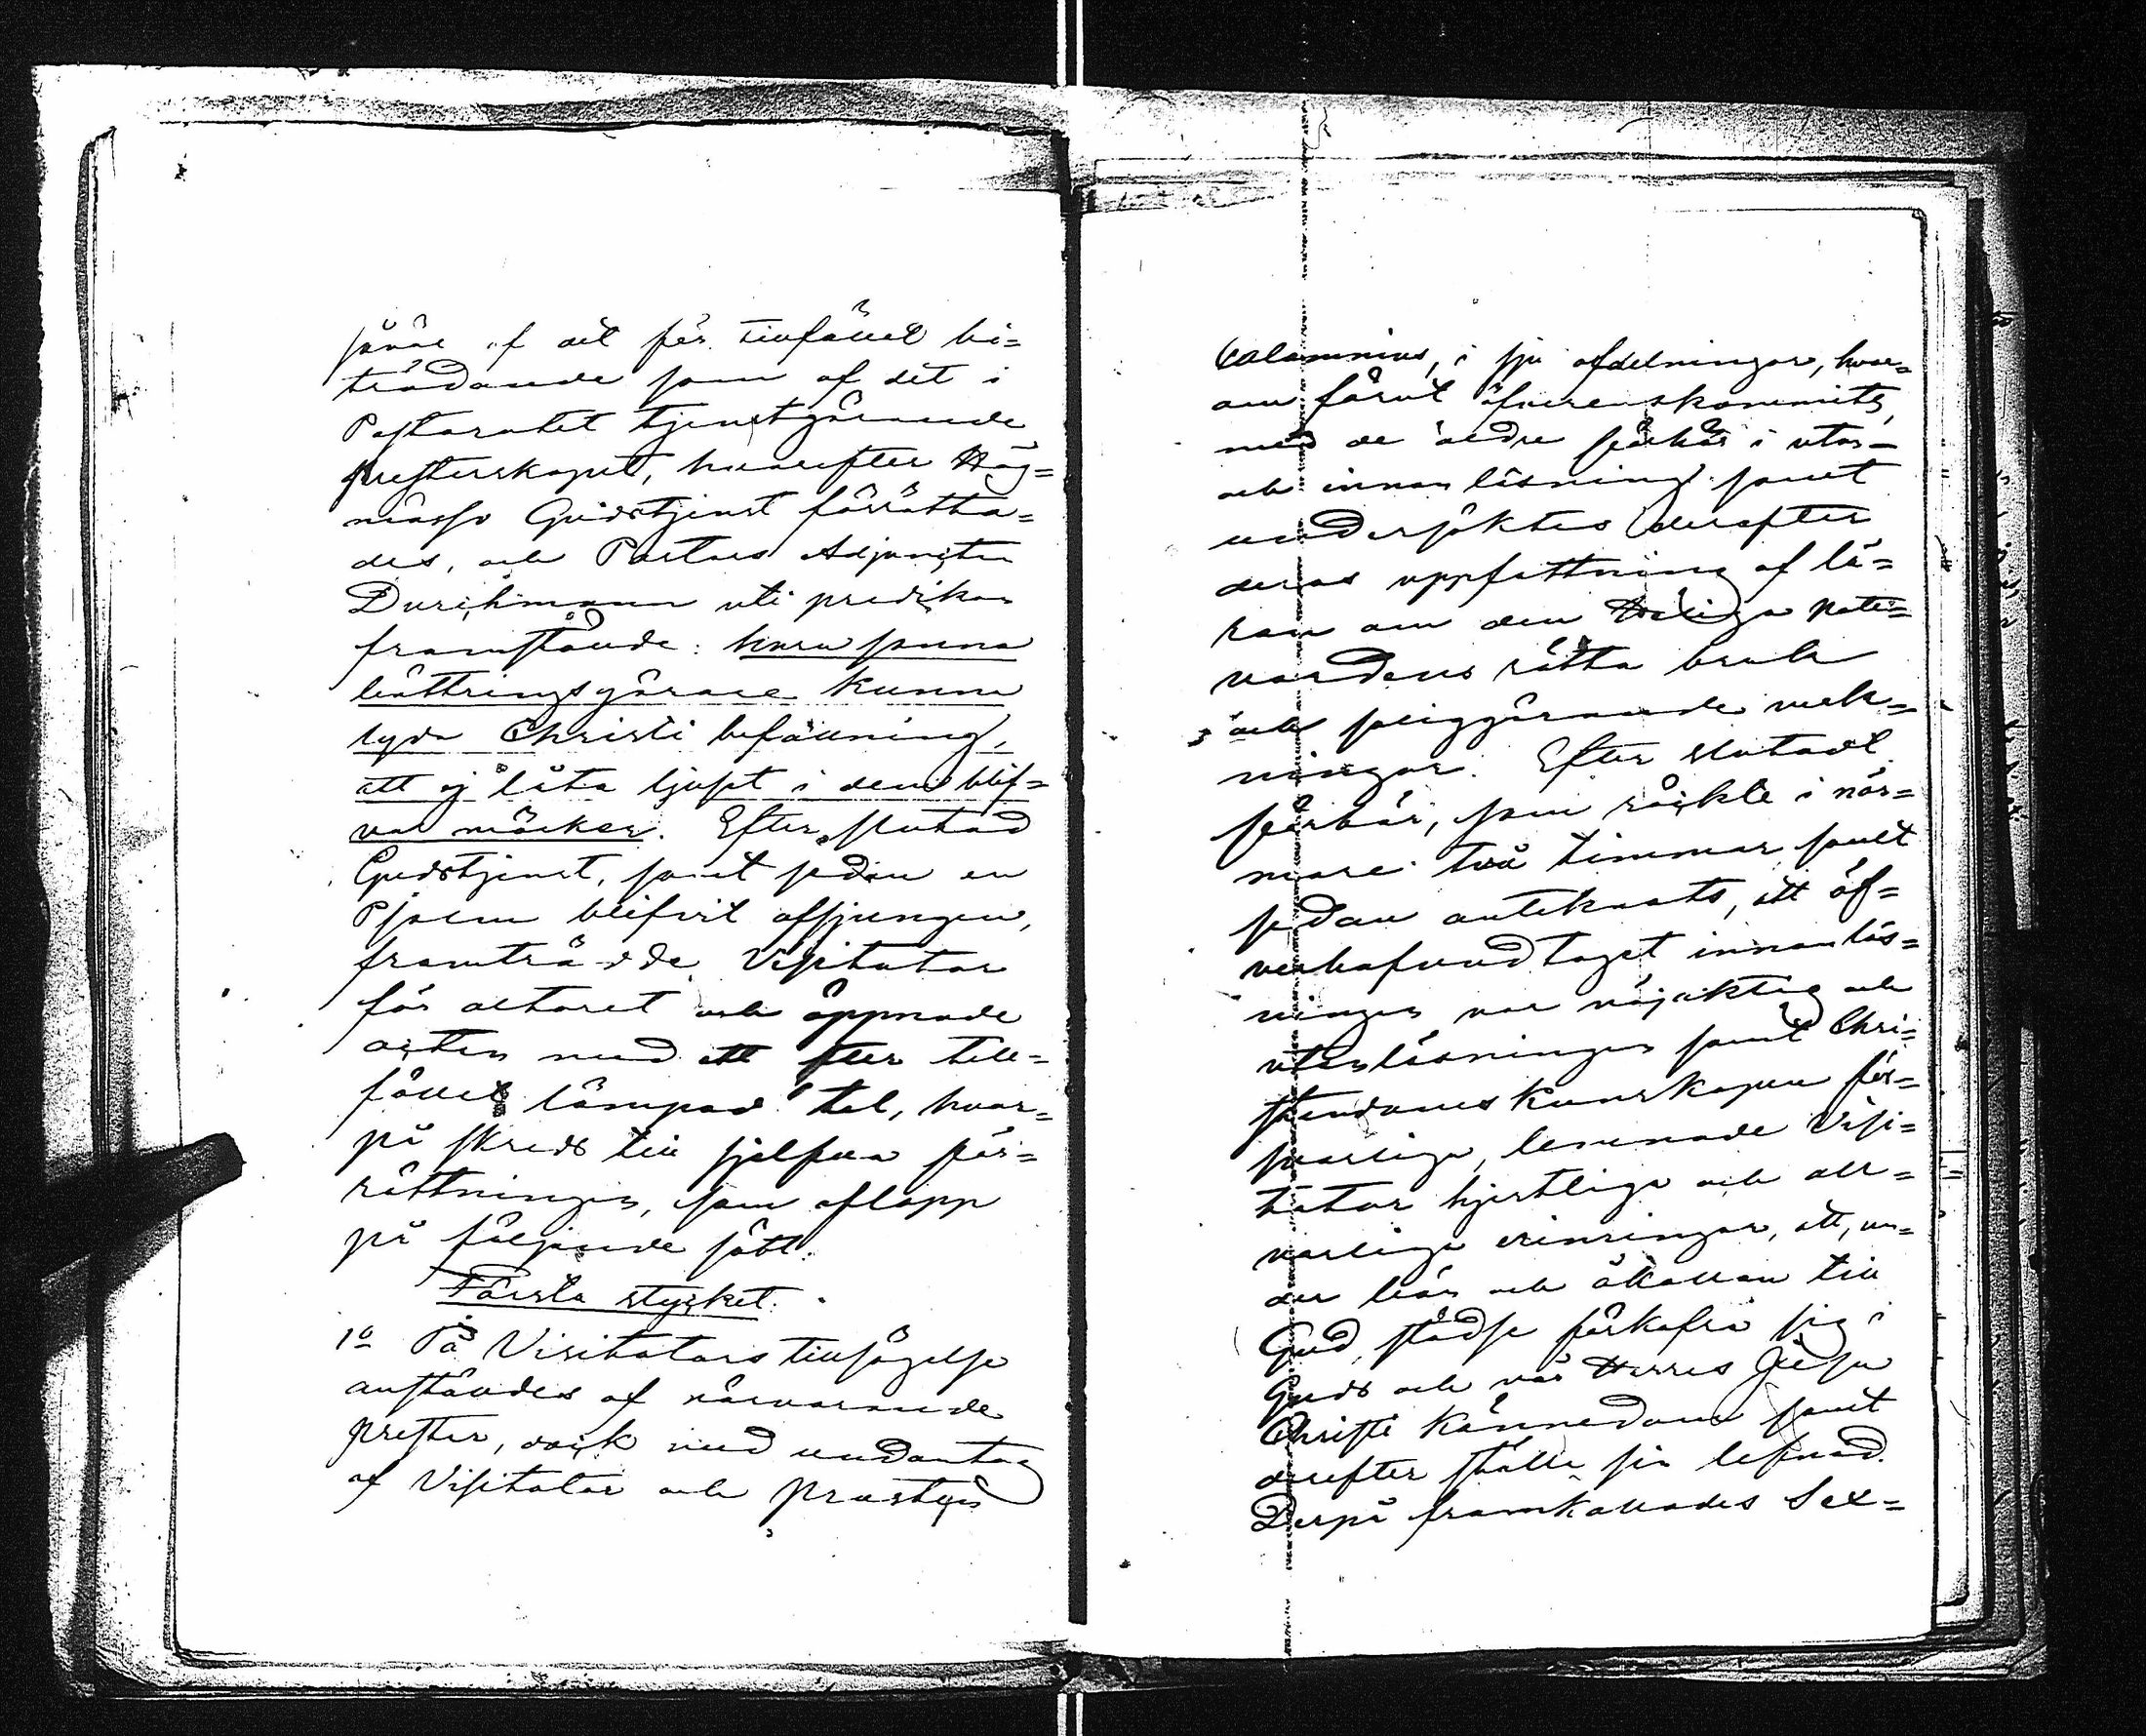 såväl af det för tillfället bi=
trädande som af det i
Pastoratet tjenstgörande
presterskapet, hvarefter Hög=
messo Gudstjenst förrätta=
des, och Pastors Adjunkten
Durchman uti predikan
framstälde: huru sanna
bättringsgörare kunna
lyda Christi befallning,
att ej låta ljuset i dem blif=
va mörker. Efter slutad
Gudstjenst, samt sedan en
Psalm blifvit afsjungen,
framträdde Visitator
för altaret och öppnade
acten med ett efter till=
fället lämpad tal, hvar=
på skreds till sjelfva för=
rättningen, som aflopp
på följande sätt.
Första stycket.
1o På Visitators tillsägelse
anstäldes af närvarande
prester, dock med undantag
af Visitator och Prosten
Calamnius, i sju afdelningar, hvar=
om förut öfverenskommits,
med de äldre förhör i utan=
och innanläsning samt
undersöktes derefter
deras uppfattning af lä=
ran om den Heliga natt=
vardens rätta bruk
och saliggörande verk=
ningar. Efter slutadt
förhör, som räckte i när=
mare två timmar samt
sedan antecknats, att öf=
verhufvud taget innanläs=
ningen var nöjaktig och
utanläsningen samt Chri=
stendomskunskapen för=
svarliga, lemnade Visi=
tator hjertliga och all=
varliga erinringar, att, un=
der bön och åkallan till
Gud, städse förkofra sig i
Guds och vår Herres Jesu
Christi kännedom samt
derefter ställa sin lefnad.
Derpå framkallades Sex=